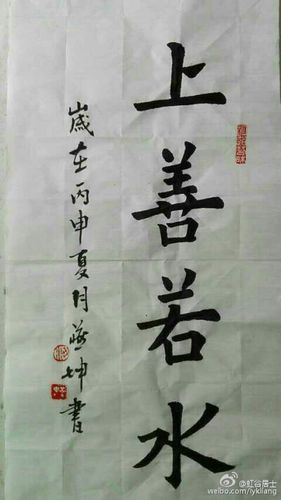 上善若水
歲在丙申夏月燕坤書
@虹谷居士
weibo.com/iykliang